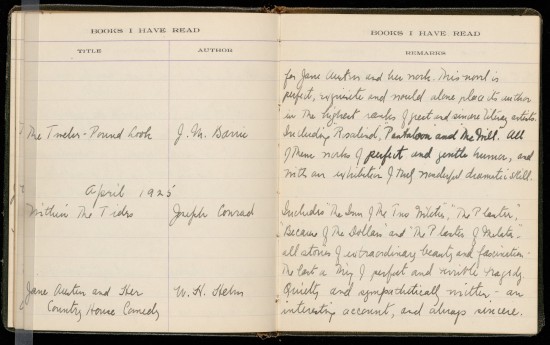 BOOKS I HAVE READ
TITLE
AUTHOR
The Twelve-Pound Look
J. M. Barrie
April 1925
Within The Tides
Joseph Conrad
Jane Austen and Her
Country House Comedy
W. H. Helm
BOOKS I HAVE READ
REMARKS
for Jane Austen and her work. This novel is
perfect, exquisite and would alone place its author
in the highest ranks of great and sincere literary artists.
Including Rosalind, Pantaloon and The Will. All
of these works of perfect and gentle humor, and
with an exhibition of truly wonderful dramatic skill.
Includes "The Inn of the Two Witches", "The Planter",
"Because of the Dollars" and "The Planter of Malata",
all stories of extraordinary beauty and fascination.
The last a thing of perfect and terrible tragedy.
Quietly and sympathetically written, - an
interesting account, and always sincere.